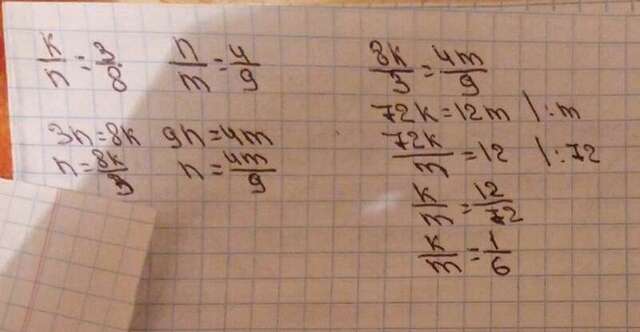 k/n = 3/8
n/m = 4/9
3n = 8k
9n = 4m
n = 8k/3
n = 4m/9
8k/3 = 4m/9
72k = 12m | : m
72k/m = 12 | : 72
k/m = 12/72
k/m = 1/6